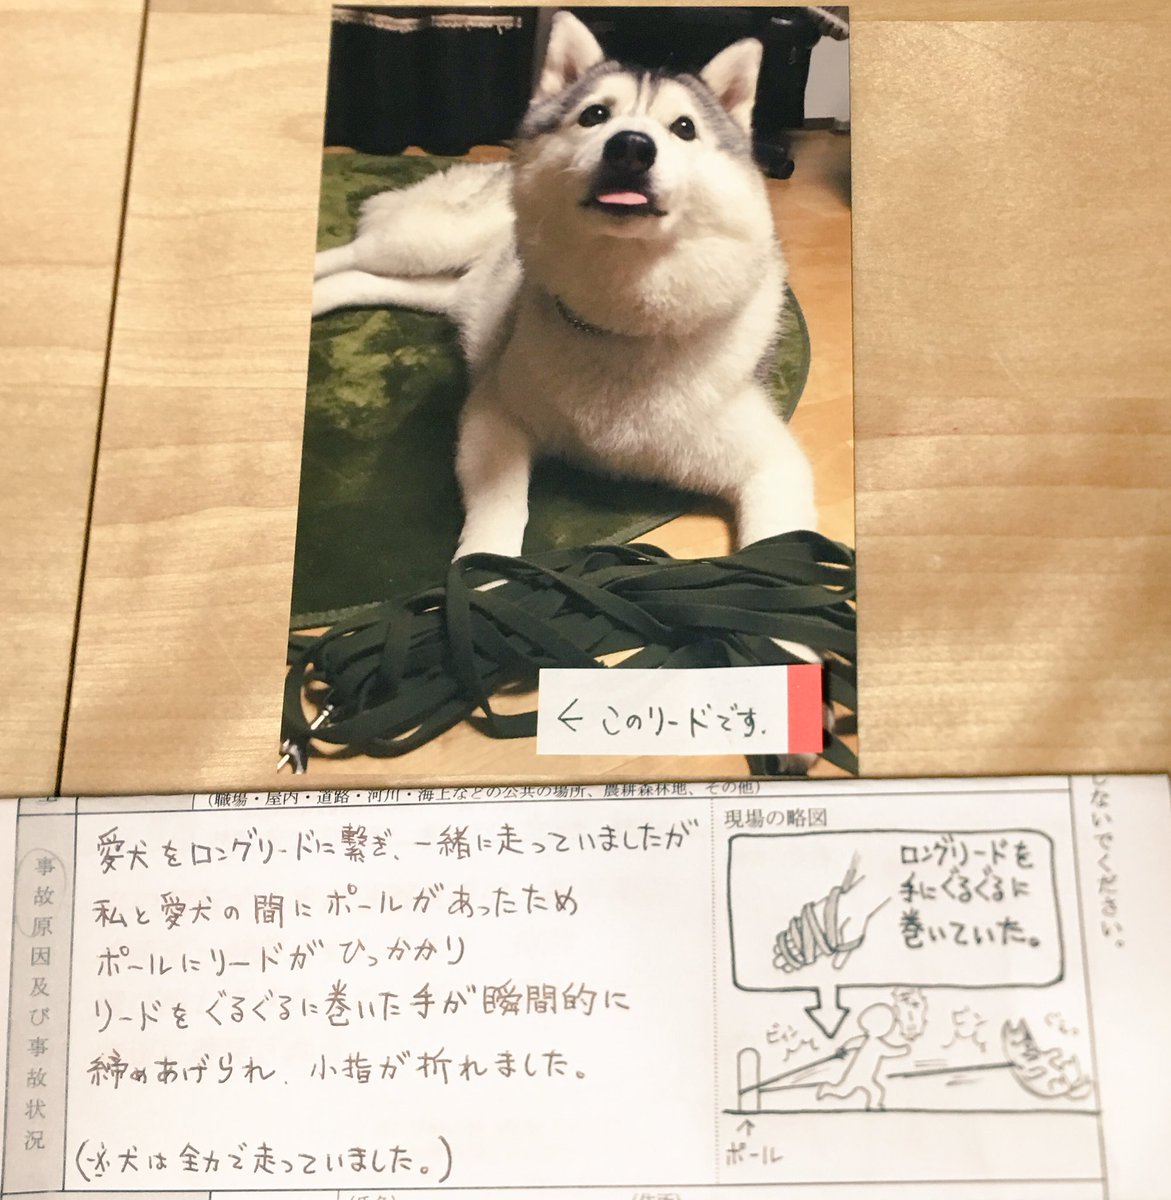 ← このリードです.
(職場・屋内・道路・河川・海上などの公共の場所、農耕森林地、その他)
事故原因及び事故状況
愛犬をロングリードに繋ぎ、一緒に走っていましたが
私と愛犬の間にポールがあったため
ポールにリードがひっかかり
リードをぐるぐるに巻いた手が瞬間的に
締めあげられ、小指が折れました。
(※犬は全力で走っていました。)
現場の略図
ロングリードを
手にぐるぐるに
巻いていた。
ビィン
ビン
↑
ポール
しないでください。